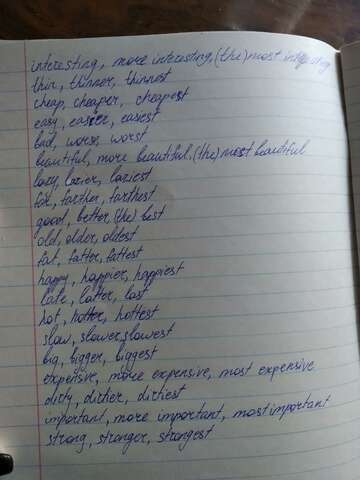 interesting, more interesting, (the) most interesting
thin, thinner, thinnest
cheap, cheaper, cheapest
easy, easier, easiest
bad, worse, worst
beautiful, more beautiful, (the) most beautiful
lazy, lazier, laziest
far, farther, farthest
good, better, (the) best
old, older, oldest
fat, fatter, fattest
happy, happier, happiest
late, latter, last
hot, hotter, hottest
slow, slower, slowest
big, bigger, biggest
expensive, more expensive, most expensive
dirty, dirtier, dirtiest
important, more important, most important
strong, stronger, strongest